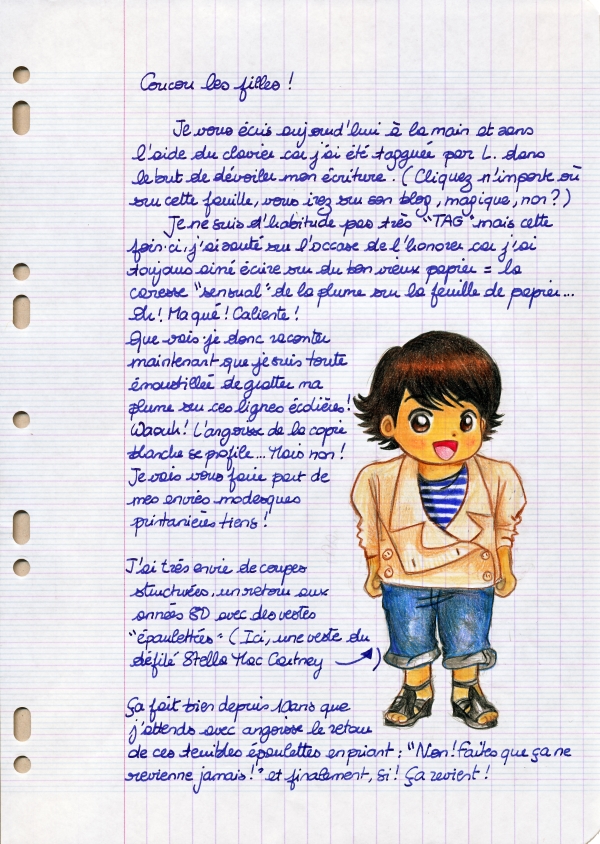 Coucou les filles !
Je vous écris aujourd'hui à la main et sans
l'aide du clavier car j'ai été tagguée par L. dans
le but de dévoiler mon écriture. (Cliquez n'importe où
sur cette feuille, vous irez sur son blog, magique, non ?)
Je ne suis d'habitude pas très "TAG" mais cette
fois-ci, j'ai sauté sur l'occase de l'honorer car j'ai
toujours aimé écrire sur du bon vieux papier = la
caresse "sensual" de la plume sur la feuille de papier...
Oh ! Ma qué ! Caliente !
Que vais-je donc raconter
maintenant que je suis toute
émoustillée de gratter ma
plume sur ces lignes écolières !
Waouh ! L'angoisse de la copie
blanche se profile... Mais non !
Je vais vous faire part de
mes envies modesques
printanières tiens !
J'ai très envie de coupes
structurées, un retour aux
années 80 avec des vestes
"épaulettées" (Ici, une veste du
défilé Stella Mac Cartney )
Ça fait bien depuis 10ans que
j'attends avec angoisse le retour
de ces terribles épaulettes en priant : "Non ! Faites que ça ne
revienne jamais !" et finalement, si ! Ça revient !